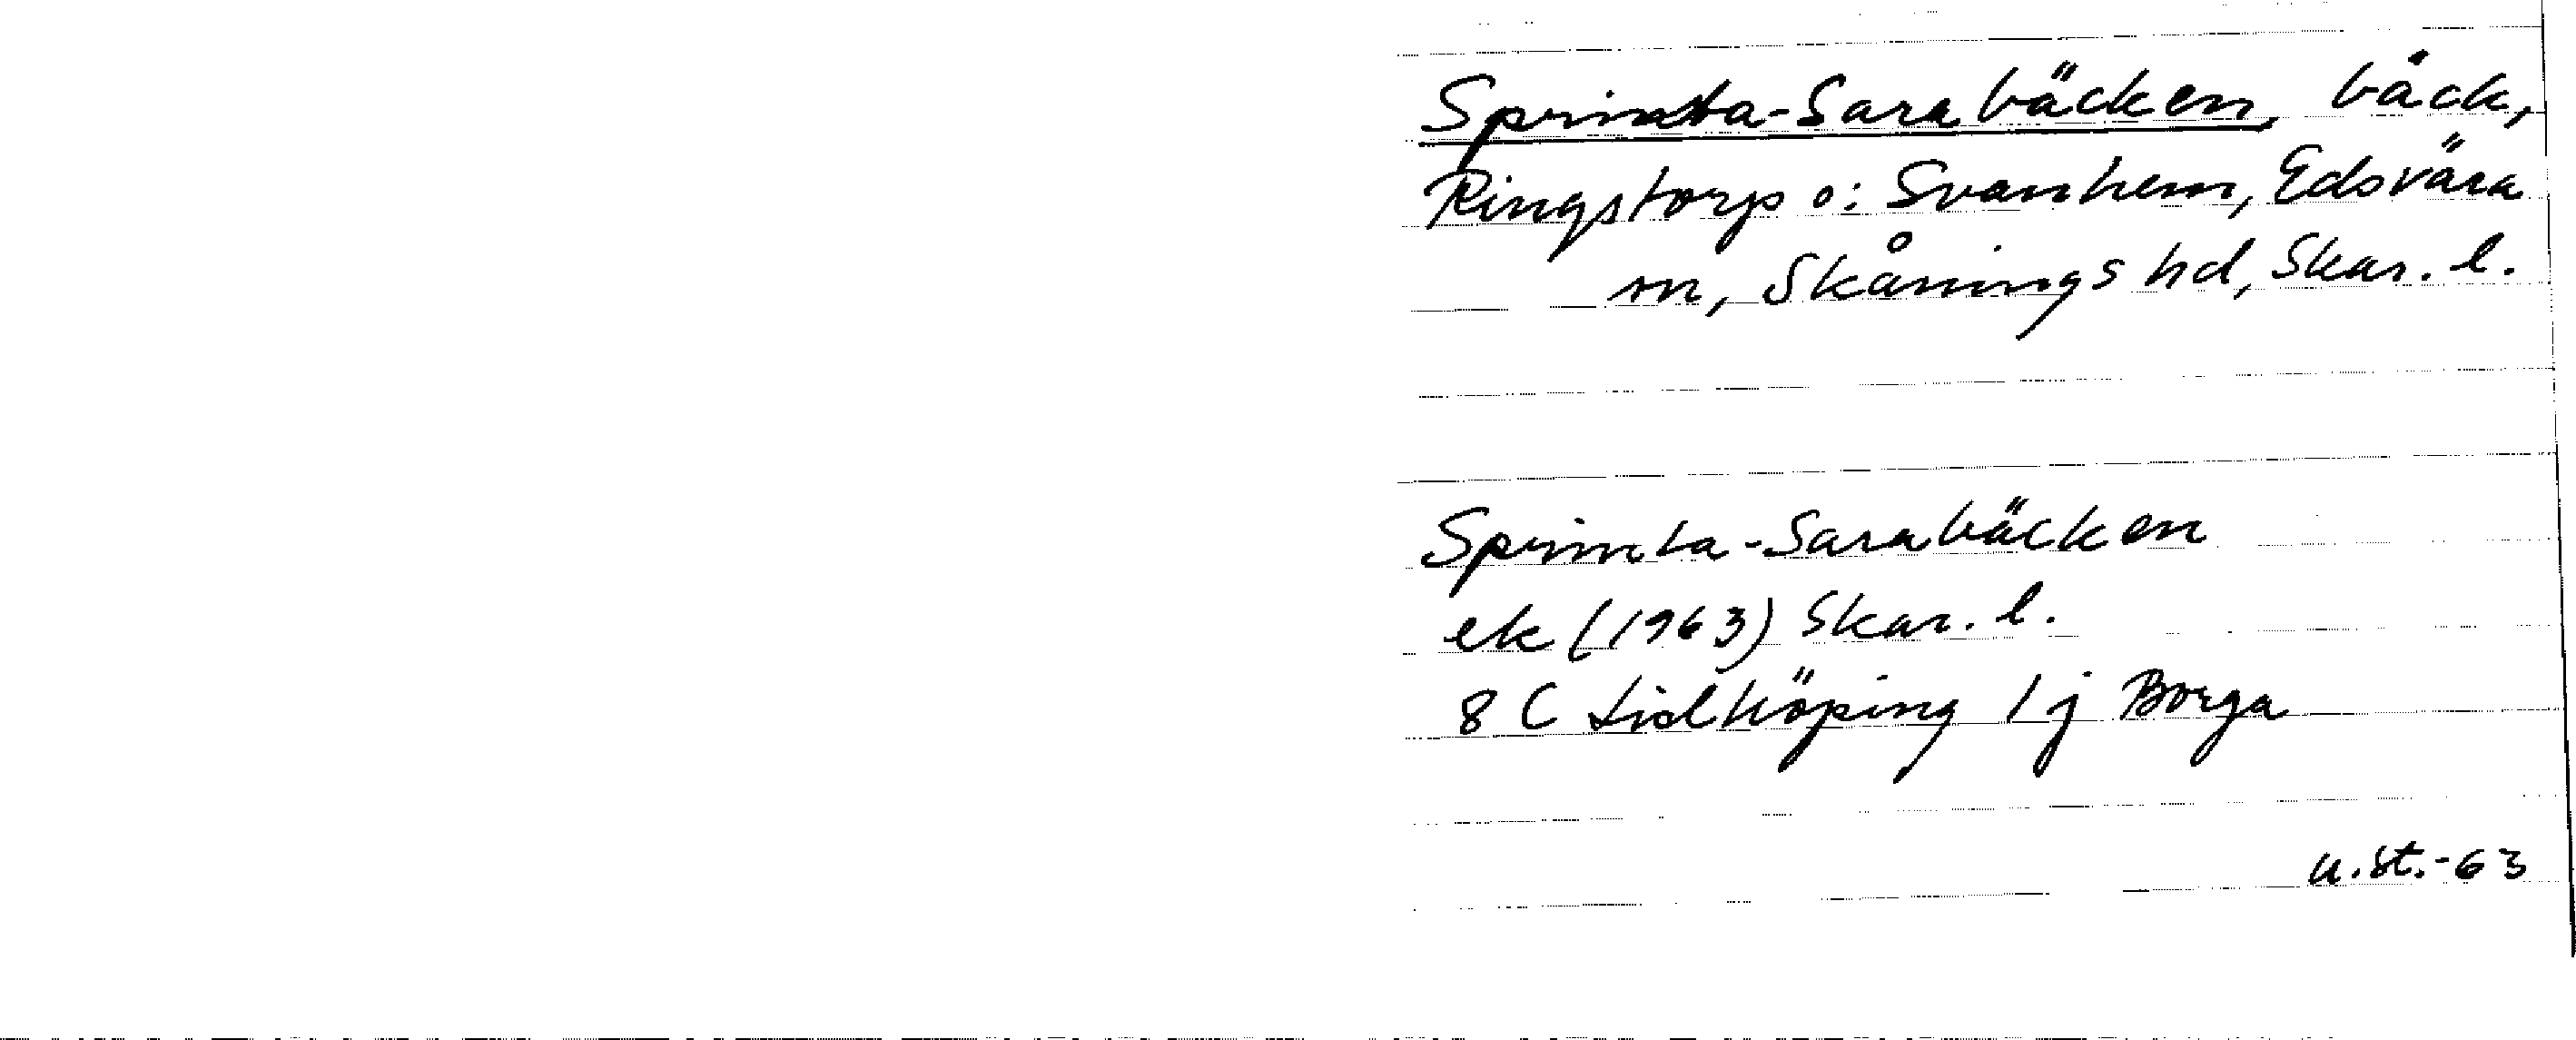 Sprinta-Sarabäcken, bäck,
Ringstorp o: Svanhem, Edsvära
sn, Skånings hd, Skar. l.
Sprinta-Sarabäcken
ek (1963) Skar. l.
8 C Lidköping 1 j Borga
u.st.-63